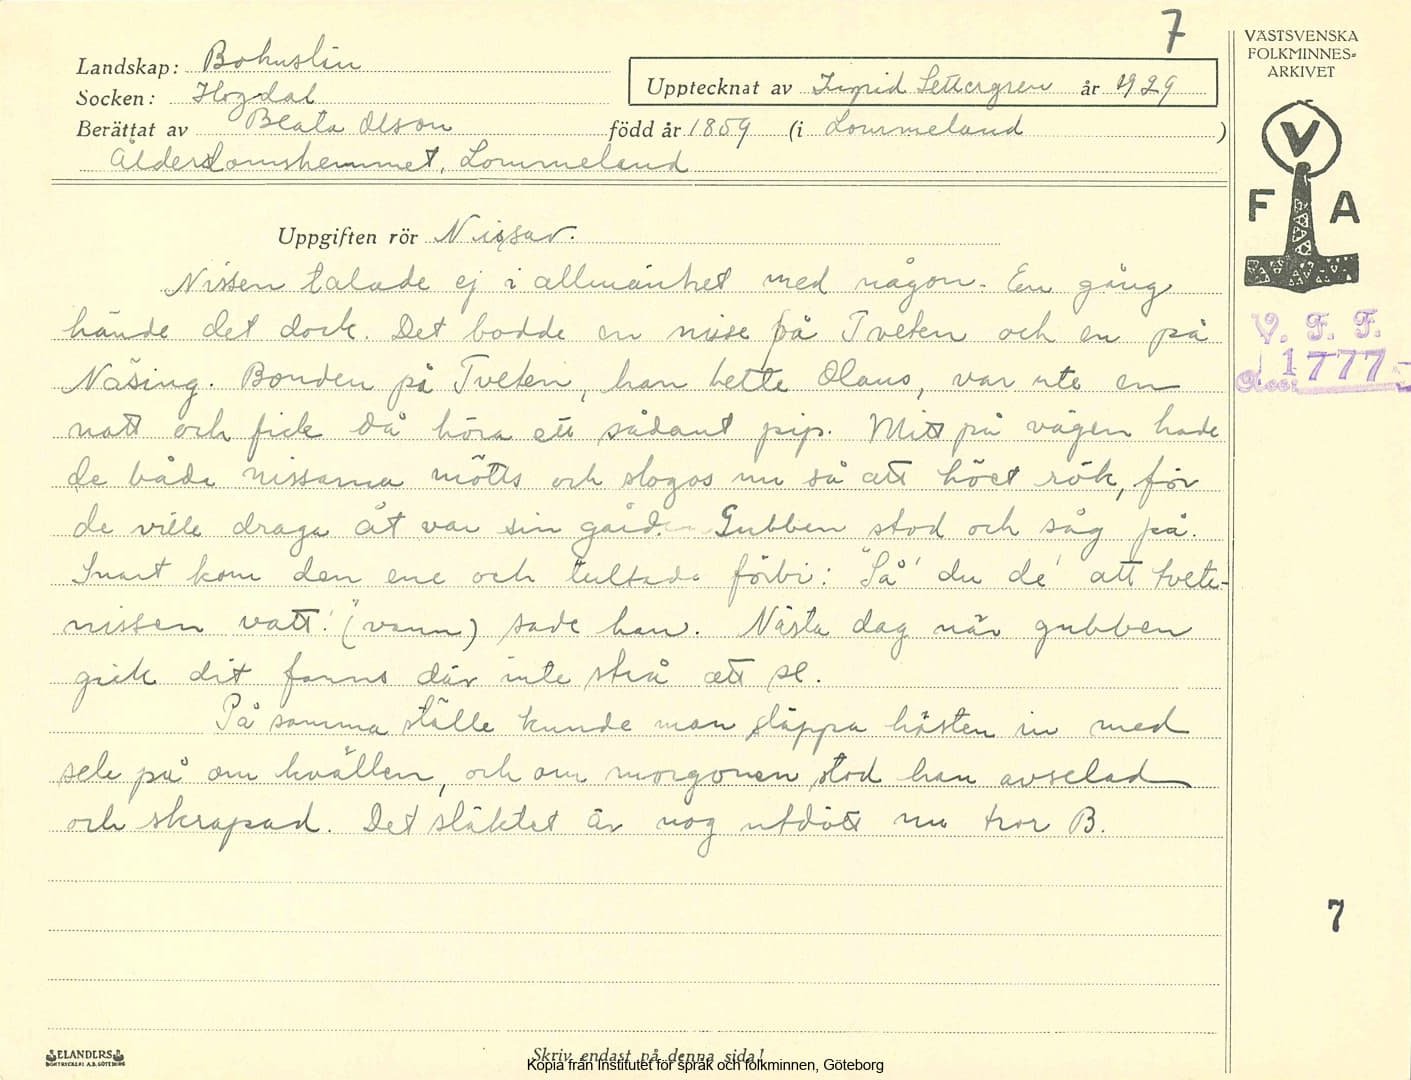 7
VÄSTSVENSKA
FOLKMINNES=
ARKIVET
Landskap: Bohuslän
Upptecknat av Ingrid Settergren år 1929
Socken: Hogdal
Berättat av Beata Olson född år 1859 (i Lommeland)
Ålderdomshemmet, Lommeland
V
F A
Uppgiften rör Nissar.
Nissen talade ej i allmänhet med någon. En gång
hände det dock. Det bodde en nisse på Tveten och en på
Näsing. Bonden på Tveten, han hette Olaus, var ute en
natt och fick då höra ett sådant pip. Mitt på vägen hade
de båda nissarna mötts och slogos nu så att höet rök, för
de ville draga åt var sin gård. Gubben stod och såg på.
Snart kom den ene och tultade förbi: "Så' du de' att tvete-
nissen vatt!" (vann) sade han. Nästa dag när gubben
gick dit fanns där inte strå att se.
På samma ställe kunde man släppa hästen in med
sele på om kvällen, och om morgonen stod han avselad
och skrapad. Det släktet är nog utdött nu tror B.
V. F. F.
1777
7
ELANDERS
BOKTRYCKERI A.B. GÖTEBORG
Skriv endast på denna sida!
Kopia från Institutet för språk och folkminnen, Göteborg